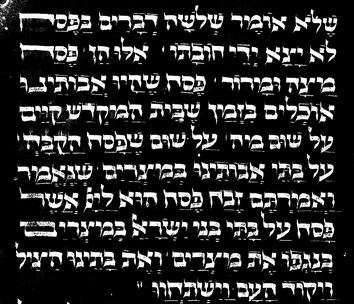 שלא אומר שלשה דברים בפסח
לא ייצא ידי חובתו אלו הן פסח
מיצה ומרור פסח שהיו אבותינו
אוכלים בזמן שבית המקדש קיים
על שום מה על שום שפסח הקבה
על בתי אבותינו במיצרים שנאמר
ואמרתם זבח פסח הוא ליי אשר
פסח על בתי בני ישראל במיצרים
בנגפו את מיצרים ואת בתינו היציל
ויקוד העם וישתחוו